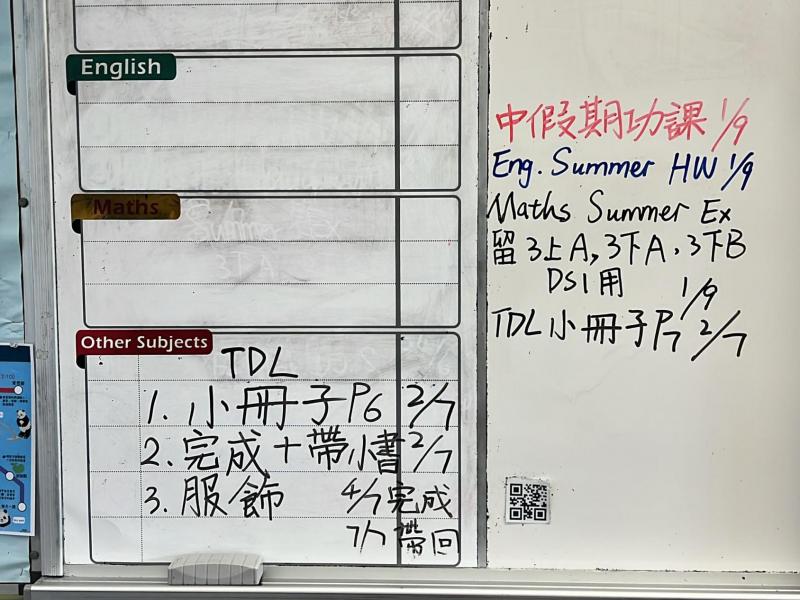 English
Maths
Other Subjects
TDL
1. 小冊子P6 2/7
2. 完成+帶小書 2/7
3. 服飾 4/7 完成
7/7 帶回
中假期功課 1/9
Eng. Summer HW 1/9
Maths Summer Ex
留3上A, 3下A, 3下B
DS1用 1/9
TDL小冊子P7 2/7